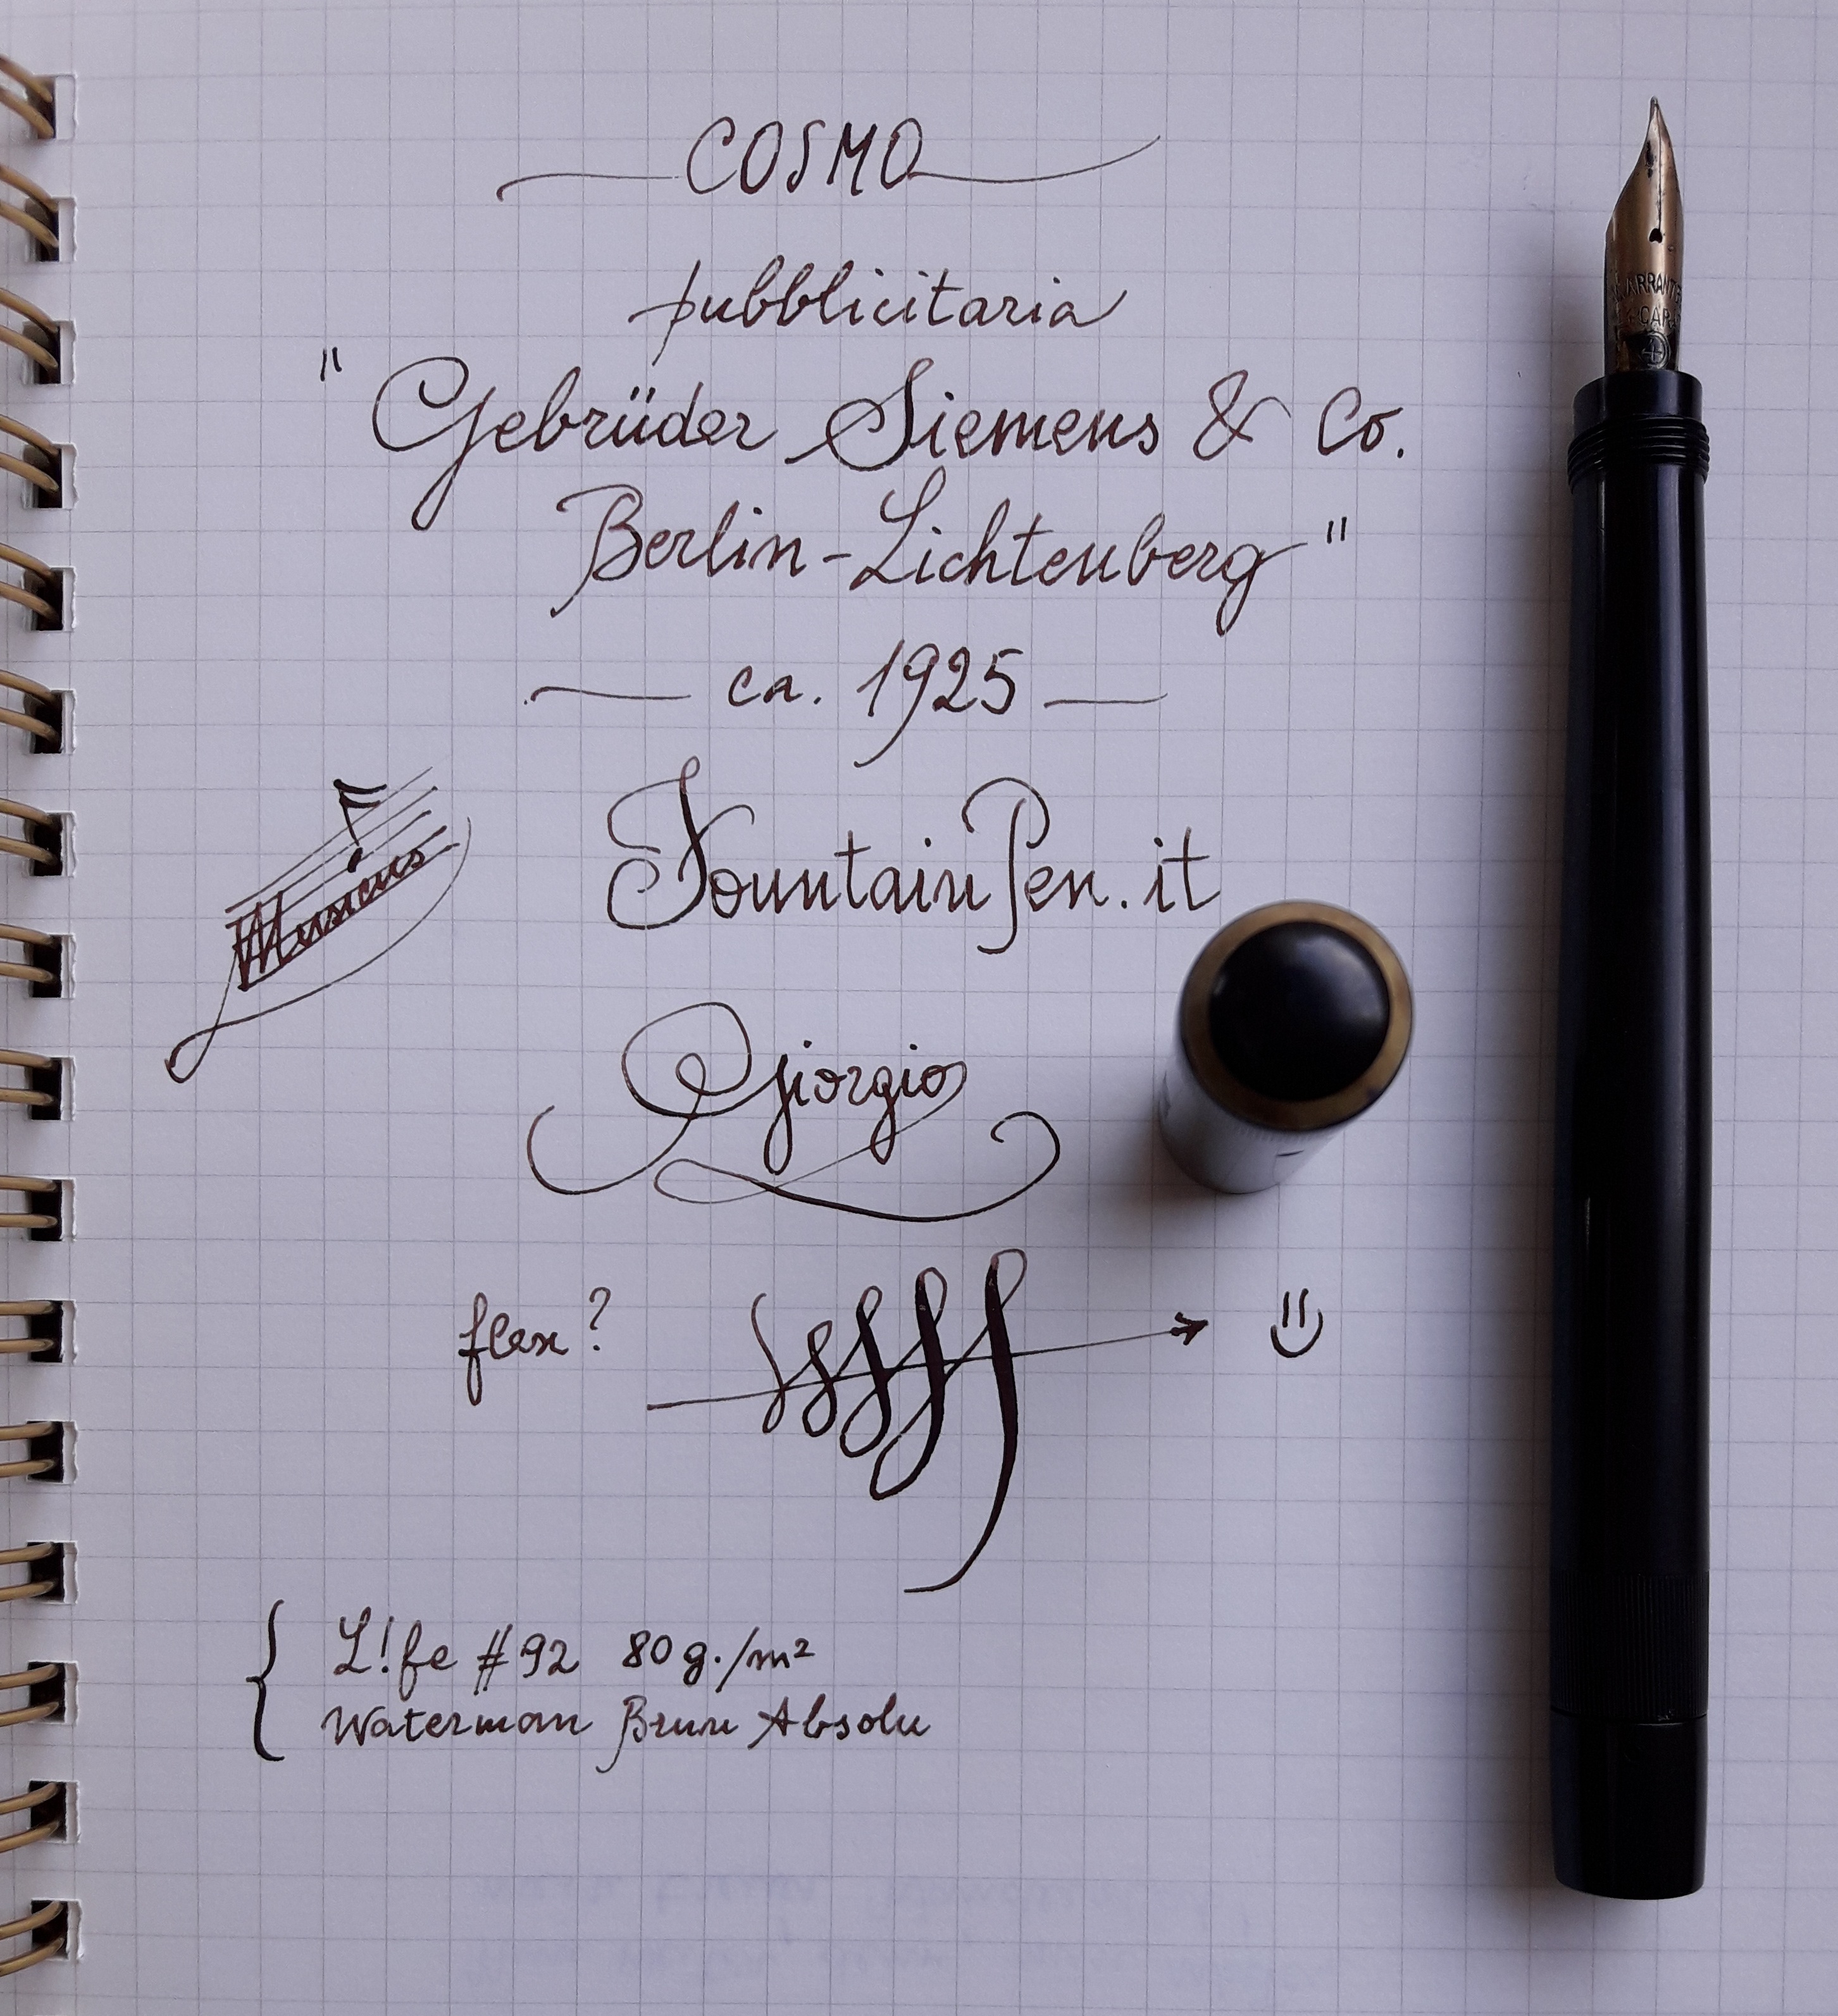 COSMO
pubblicitaria
"Gebrüder Siemens & Co.
Berlin-Lichtenberg"
ca. 1925
Musicus
FountainPen.it
Giorgio
flex?
L!fe #92 80g./m²
Waterman Brun Absolu